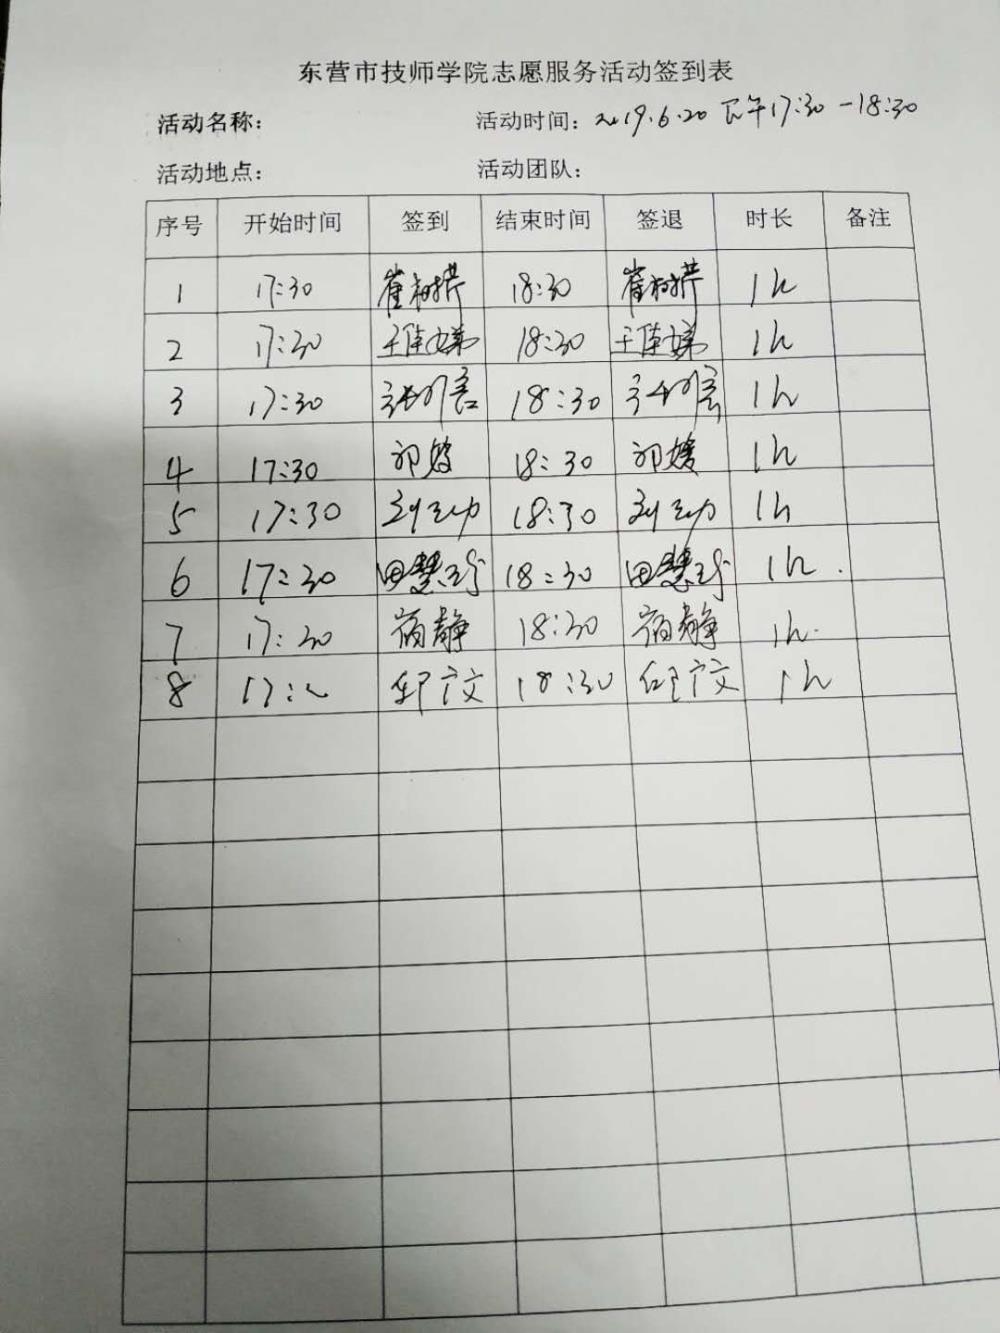 东营市技师学院志愿服务活动签到表
活动名称： 活动时间：2019.6.20 下午17:30-18:30
活动地点： 活动团队：
序号 开始时间 签到 结束时间 签退 时长 备注
1 17:30 崔树芹 18:30 崔树芹 1h
2 17:30 王佳娣 18:30 王佳娣 1h
3 17:30 18:30 1h
4 17:30 18:30 1h
5 17:30 18:30 1h
6 17:30 田慧玲 18:30 田慧玲 1h.
7 17:30 宿静 18:30 宿静 1h.
8 17: 18:30 任广文 1h